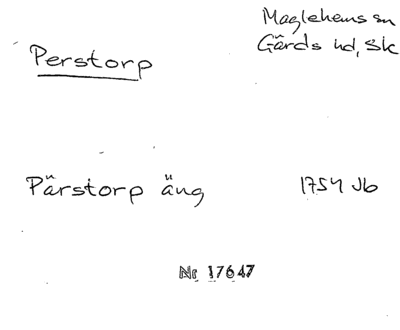 Maglehems sn
Gärds hd, Sk
Perstorp
Pärstorp äng 1754 Jb
Nr 17647